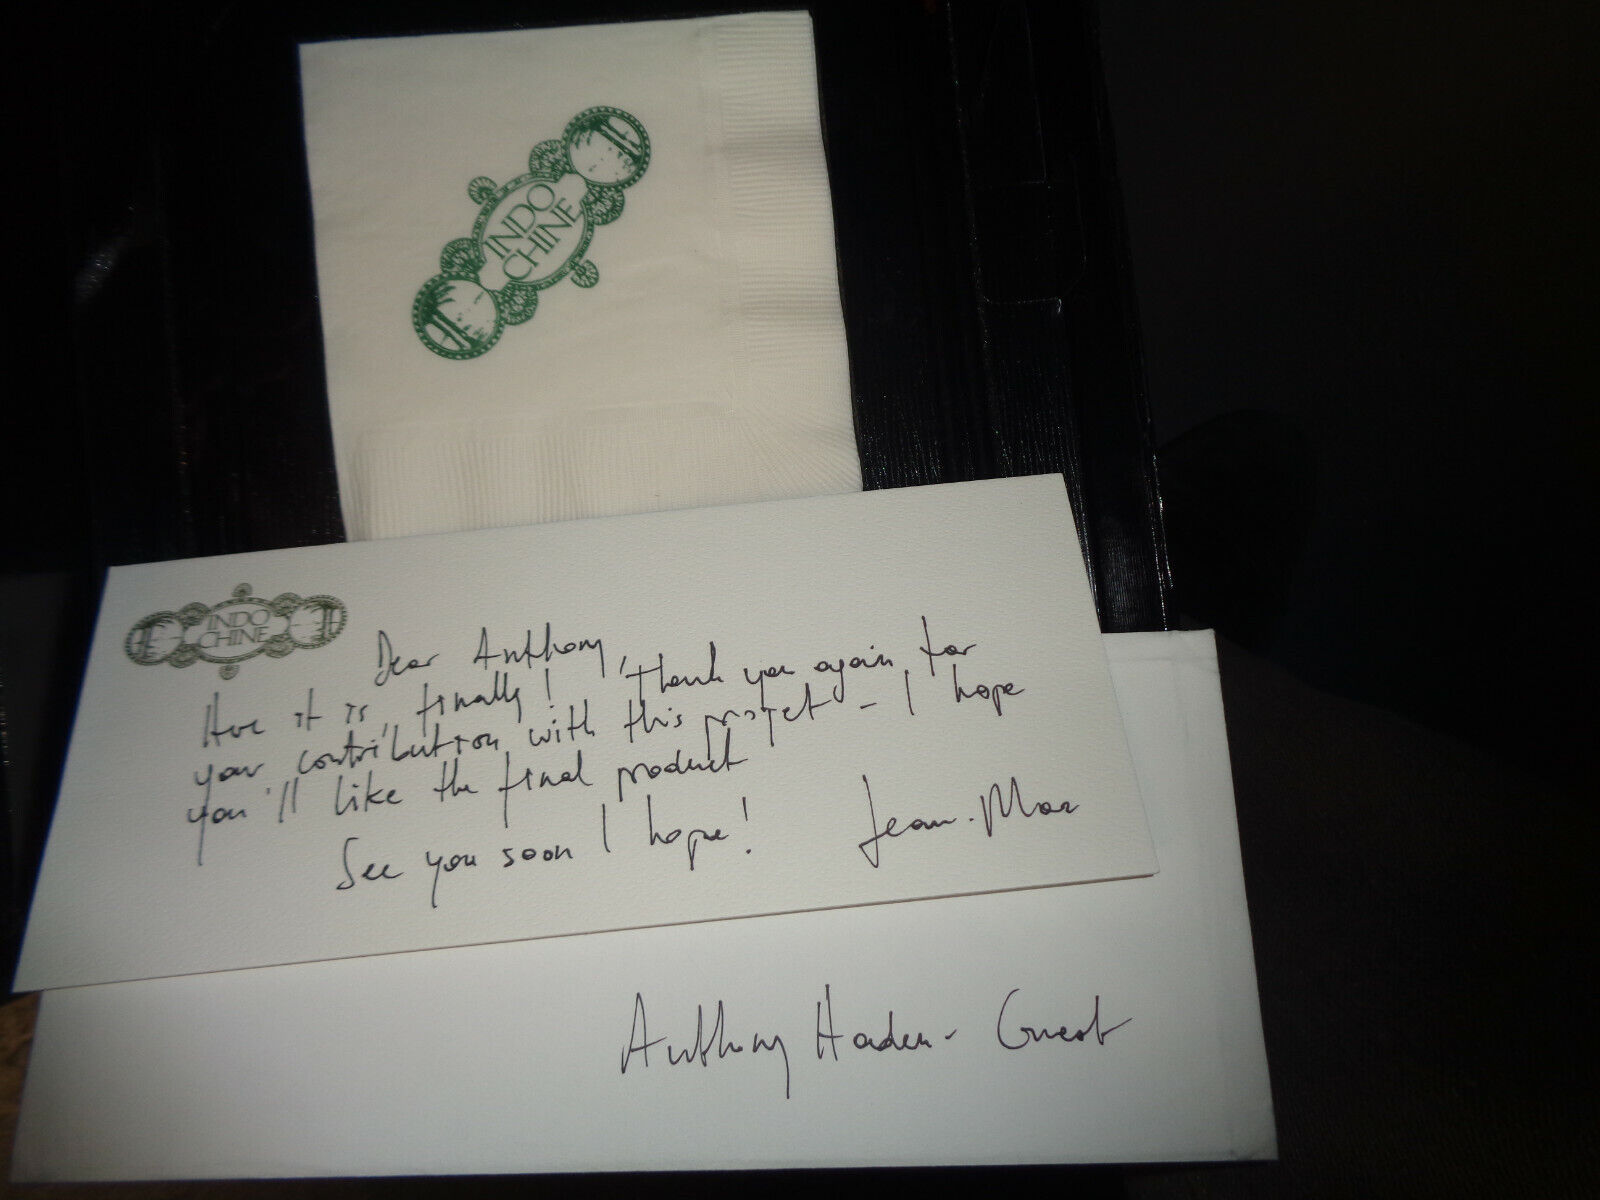 INDO
CHINE
INDO
CHINE
Dear Anthony,
Here it is, finally! Thank you again for
your contribution with this project - I hope
you'll like the final product
See you soon I hope!
Jean-Marc
Anthony Haden-Guest